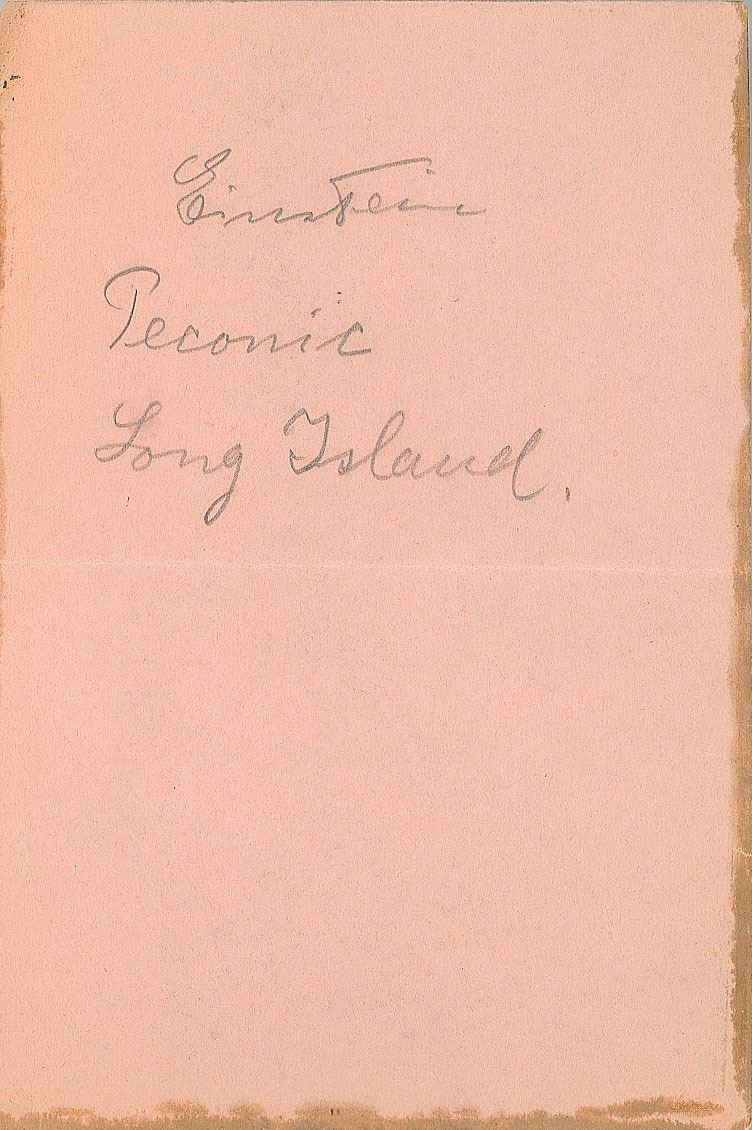 Einstein
Peconic
Long Island.